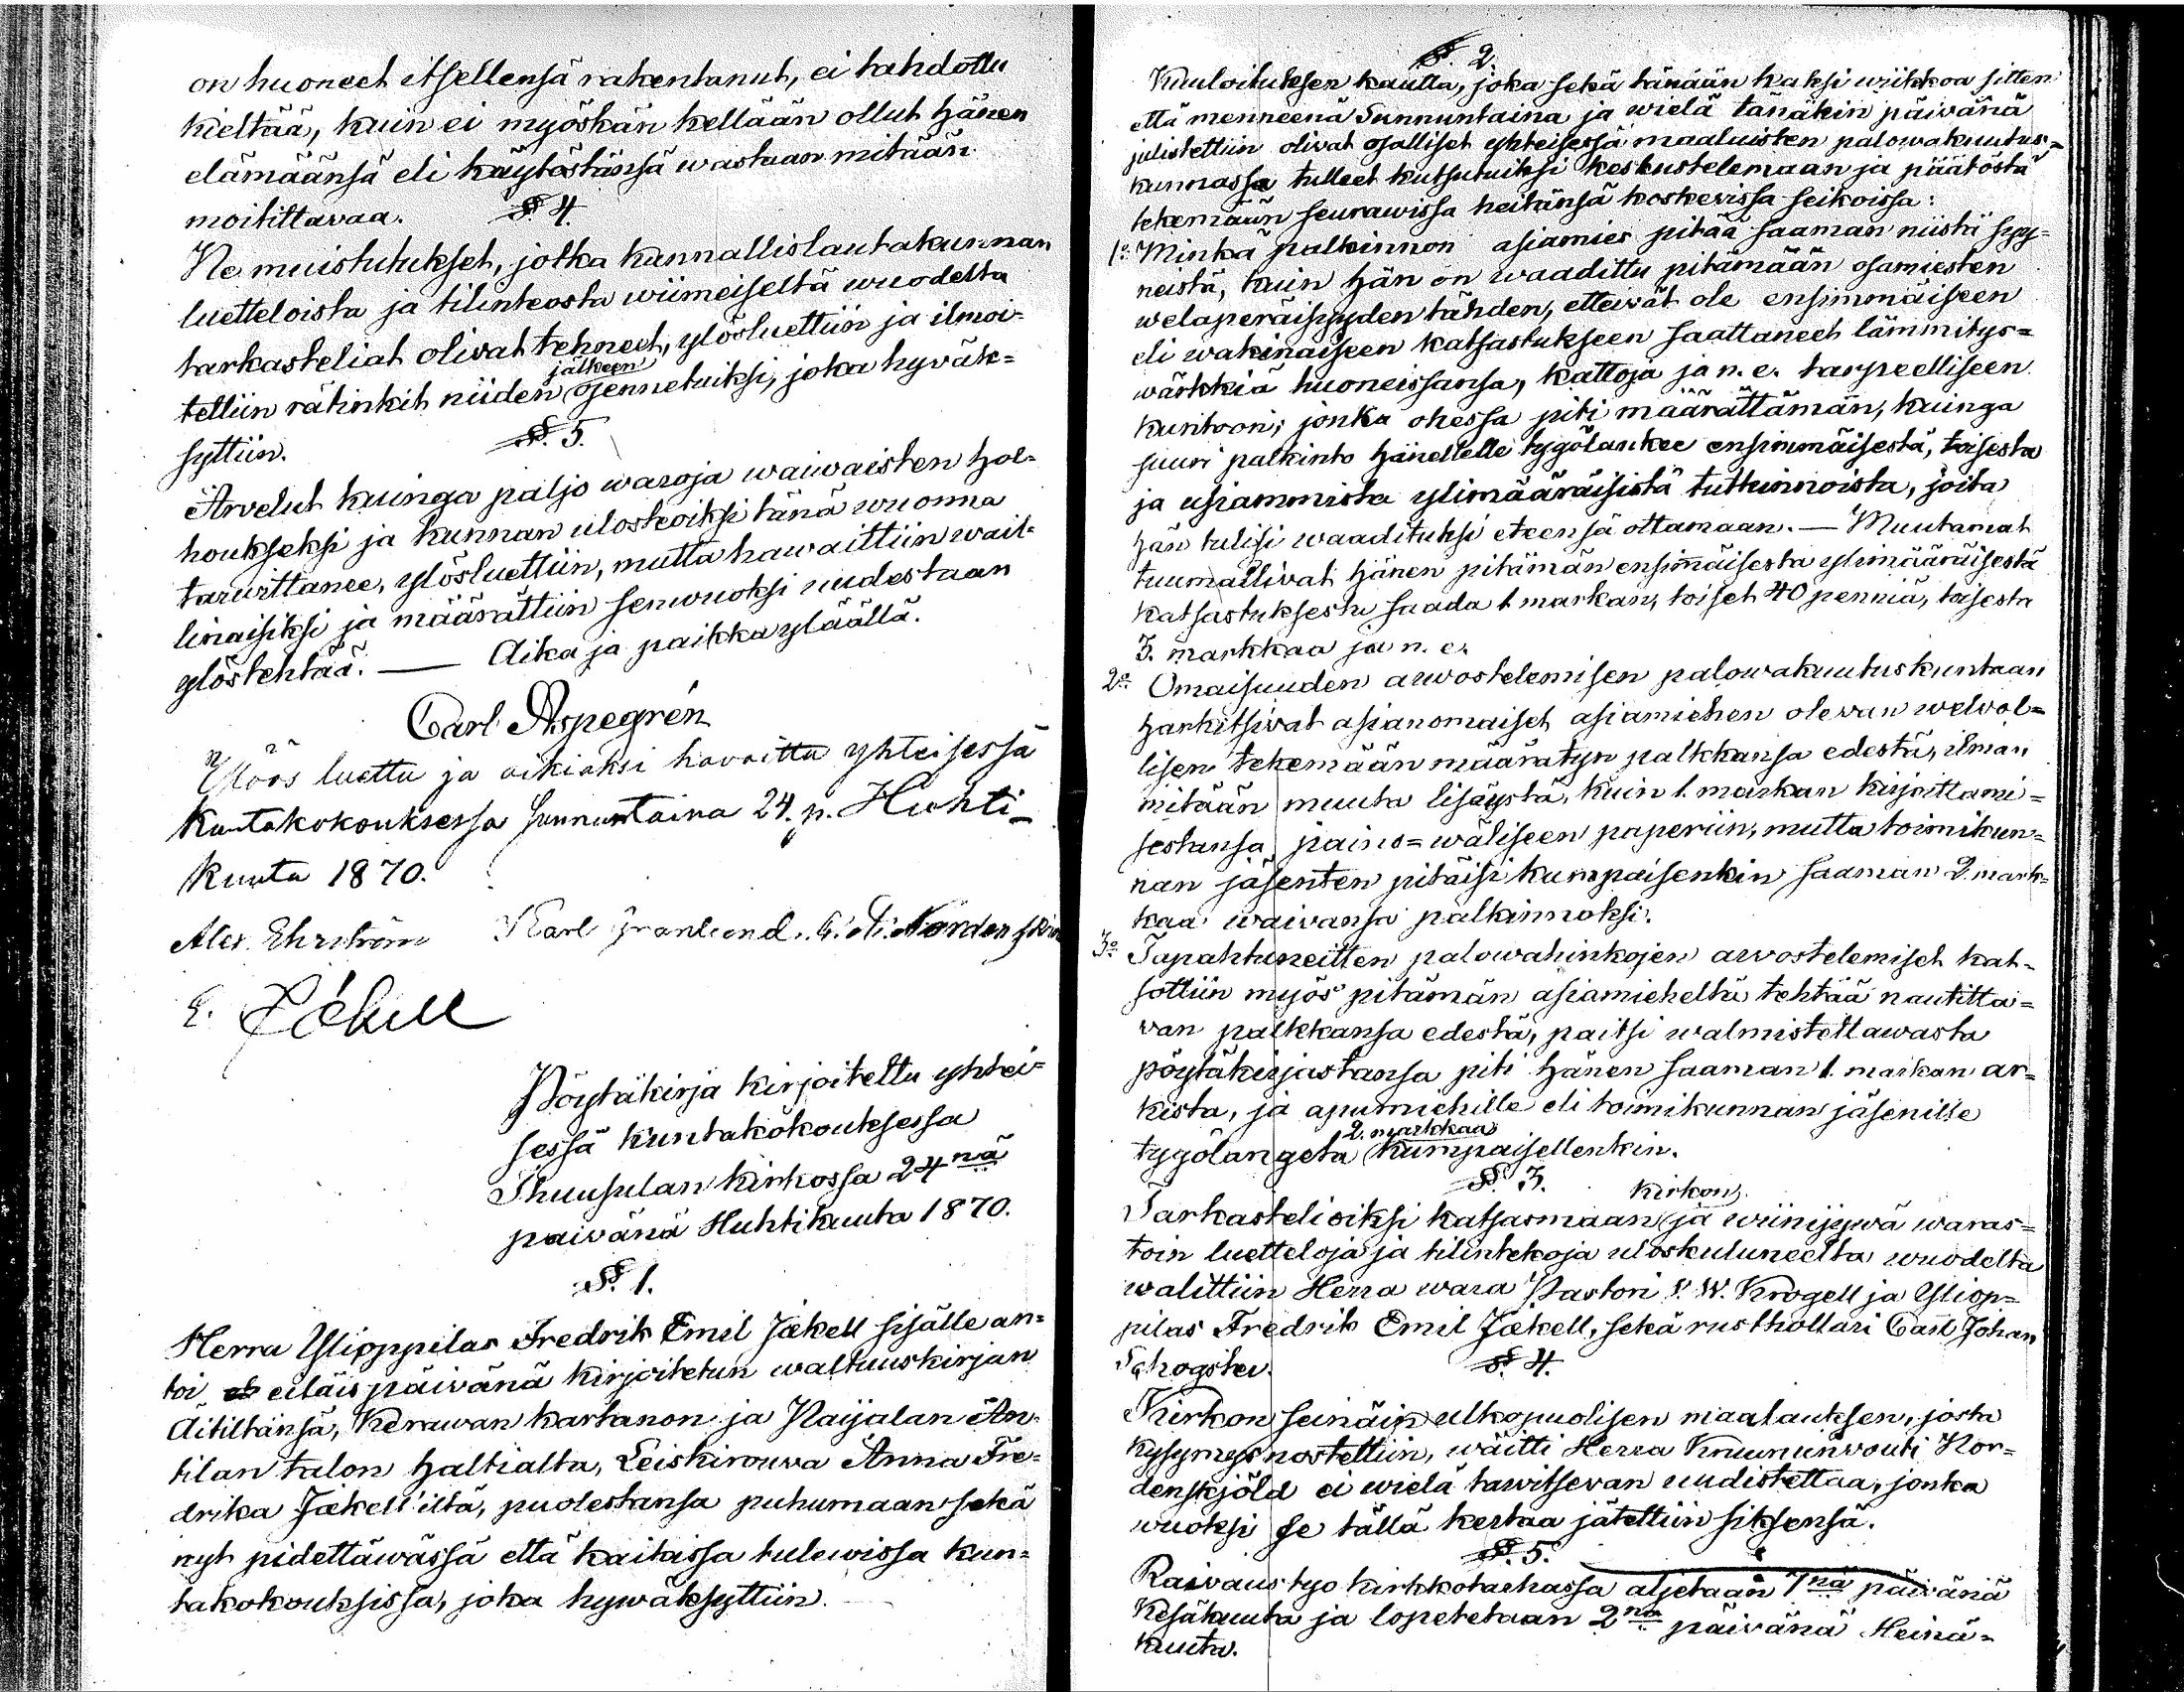 on huoneet itsellensä rakentanut, ei tahdottu
kieltää, kuin ei myöskän kellään ollut hänen
elämäänsä eli käytöstänsä wastaan mitään
moitittavaa. §. 4.
Ne muistutukset, jotka kunnallislautakunnan
luetteloista ja tilinteosta wiimeiseltä wuodelta
tarkasteliat olivat tehneet, ylösluettiin ja ilmoi-
tettiin rätinkit niiden jälkeen ojennetuiksi, joka hyväk-
syttiin. §. 5.
Arvelut kuinga paljo waroja waiwaisten hol-
houkseksi ja kunnan ulosteoiksi tänä wuonna
tarwittanee, ylösluettiin, mutta hawaittiin wail-
linaisiksi ja määrättiin senwuoksi uudestaan
ylöstehtää. — Aika ja paikka yläällä.
Carl Aspegrén
Ylös luettu ja oikiaksi havaittu yhteisessä
Kuntakokouksessa sunnuntaina 24. p. Huhti-
kuuta 1870.
Alex. Ehrström Karl Granlund. G. A. Nordenskiö
E. Jäkell
Pöytäkirja kirjoitettu yhtei-
sessä kuntakokouksessa
Thuusulan kirkossa 24nä
päivänä Huhtikuuta 1870.
§. 1.
Herra Ylioppilas Fredrik Emil Jækell sisälle an-
toi eiläispäivänä kirjoitetun waltuuskirjan
Äitiltänsä, Kerawan kartanon ja Naijalan An-
tilan talon haltialta, Leskirouwa Anna Fre-
drika Jækell'iltä, puolestansa puhumaan sekä
nyt pidettäwässä että kaikissa tulewissa kun-
takokouksissa, joka hywäksyttiin.
§. 2.
Kuuloituksen kautta, joka sekä tänään kaksi wiikkoa sitten
että menneenä Sunnuntaina ja wielä tänäkin päivänä
julistettiin olivat osalliset yhteisessä maaluisten palowakuutus-
kunnassa tulleet kutsutuiksi keskustelemaan ja päätöstä
tekemään seurawissa heitänsä koskevissa seikoissa:
1o Minkä palkinnon asiamies pitää saaman niistä syy-
neistä, kuin hän on waadittu pitämään osamiesten
welaperäisyyden tähden, etteivät ole ensimmäiseen
eli wakinaiseen katsastukseen saattaneet lämmitys-
wärkkiä huoneissansa, kattoja ja n. e. tarpeelliseen
kuntoon; jonka ohessa piti määrättämän, kuinga
suuri palkinto hänellelle tygölankee ensimmäisestä, toisesta
ja usiammista ylimääräisistä tutkinnoista, joita
hän tulisi waadituksi eteensä ottamaan. — Muutamat
tuumailivat hänen pitämän ensimäisestä ylimääräisestä
katsastuksesta saada 1 markan, toiset 40 penniä, toisesta
3. markkaa ja n. e.
2o Omaisuuden arwostelemisen palowakuutuskuntaan
harkitsivat asianomaiset asiamiehen olewan welvol-
lisen tekemään määrätyn palkkansa edestä, ilman
mitään muuta lisäystä, kuin 1. markan kirjoittami-
sestansa paino-wäliseen paperiin, mutta toimikun-
nan jäsenten pitäisi kumpaisenkin saaman 2 mark-
kaa waivansa palkinnoksi.
3o Tapahtuneitten palowahinkojen arvostelemiset kat-
sottiin myös pitämän asiamieheltä tehtää nautitta-
van palkkansa edestä, paitsi walmistettawasta
pöytäkirjastansa piti hänen saaman 1. markan ar-
kista, ja apumiehille eli toimikunnan jäsenille
tygölangeta 2. markkaa kumpaisellenkin.
§. 3.
Tarkastelioiksi katsasmaan kirkon ja wiinijywä waras-
toin luetteloja ja tilintekoja uloskuluneelta wuodelta
walittiin Herra wara Pastori V. W. Krogell ja Yliop-
pilas Fredrik Emil Jækell, sekä rusthollari Carl Johan
Skogster. §. 4.
Kirkon seinäin ulkopuolisen maalauksen, josta
kysymys nostettiin, wäitti Herra Kruununvouti Nor-
denskjöld ei wielä tawitsevan uudistettaa, jonka
wuoksi se tällä kertaa jätettiin siksensä.
§. 5.
Raivaustyo kirkkotarhassa aljetaan 7nä päivänä
Kesäkuuta ja lopetetaan 2na päivänä Heinä-
kuuta.